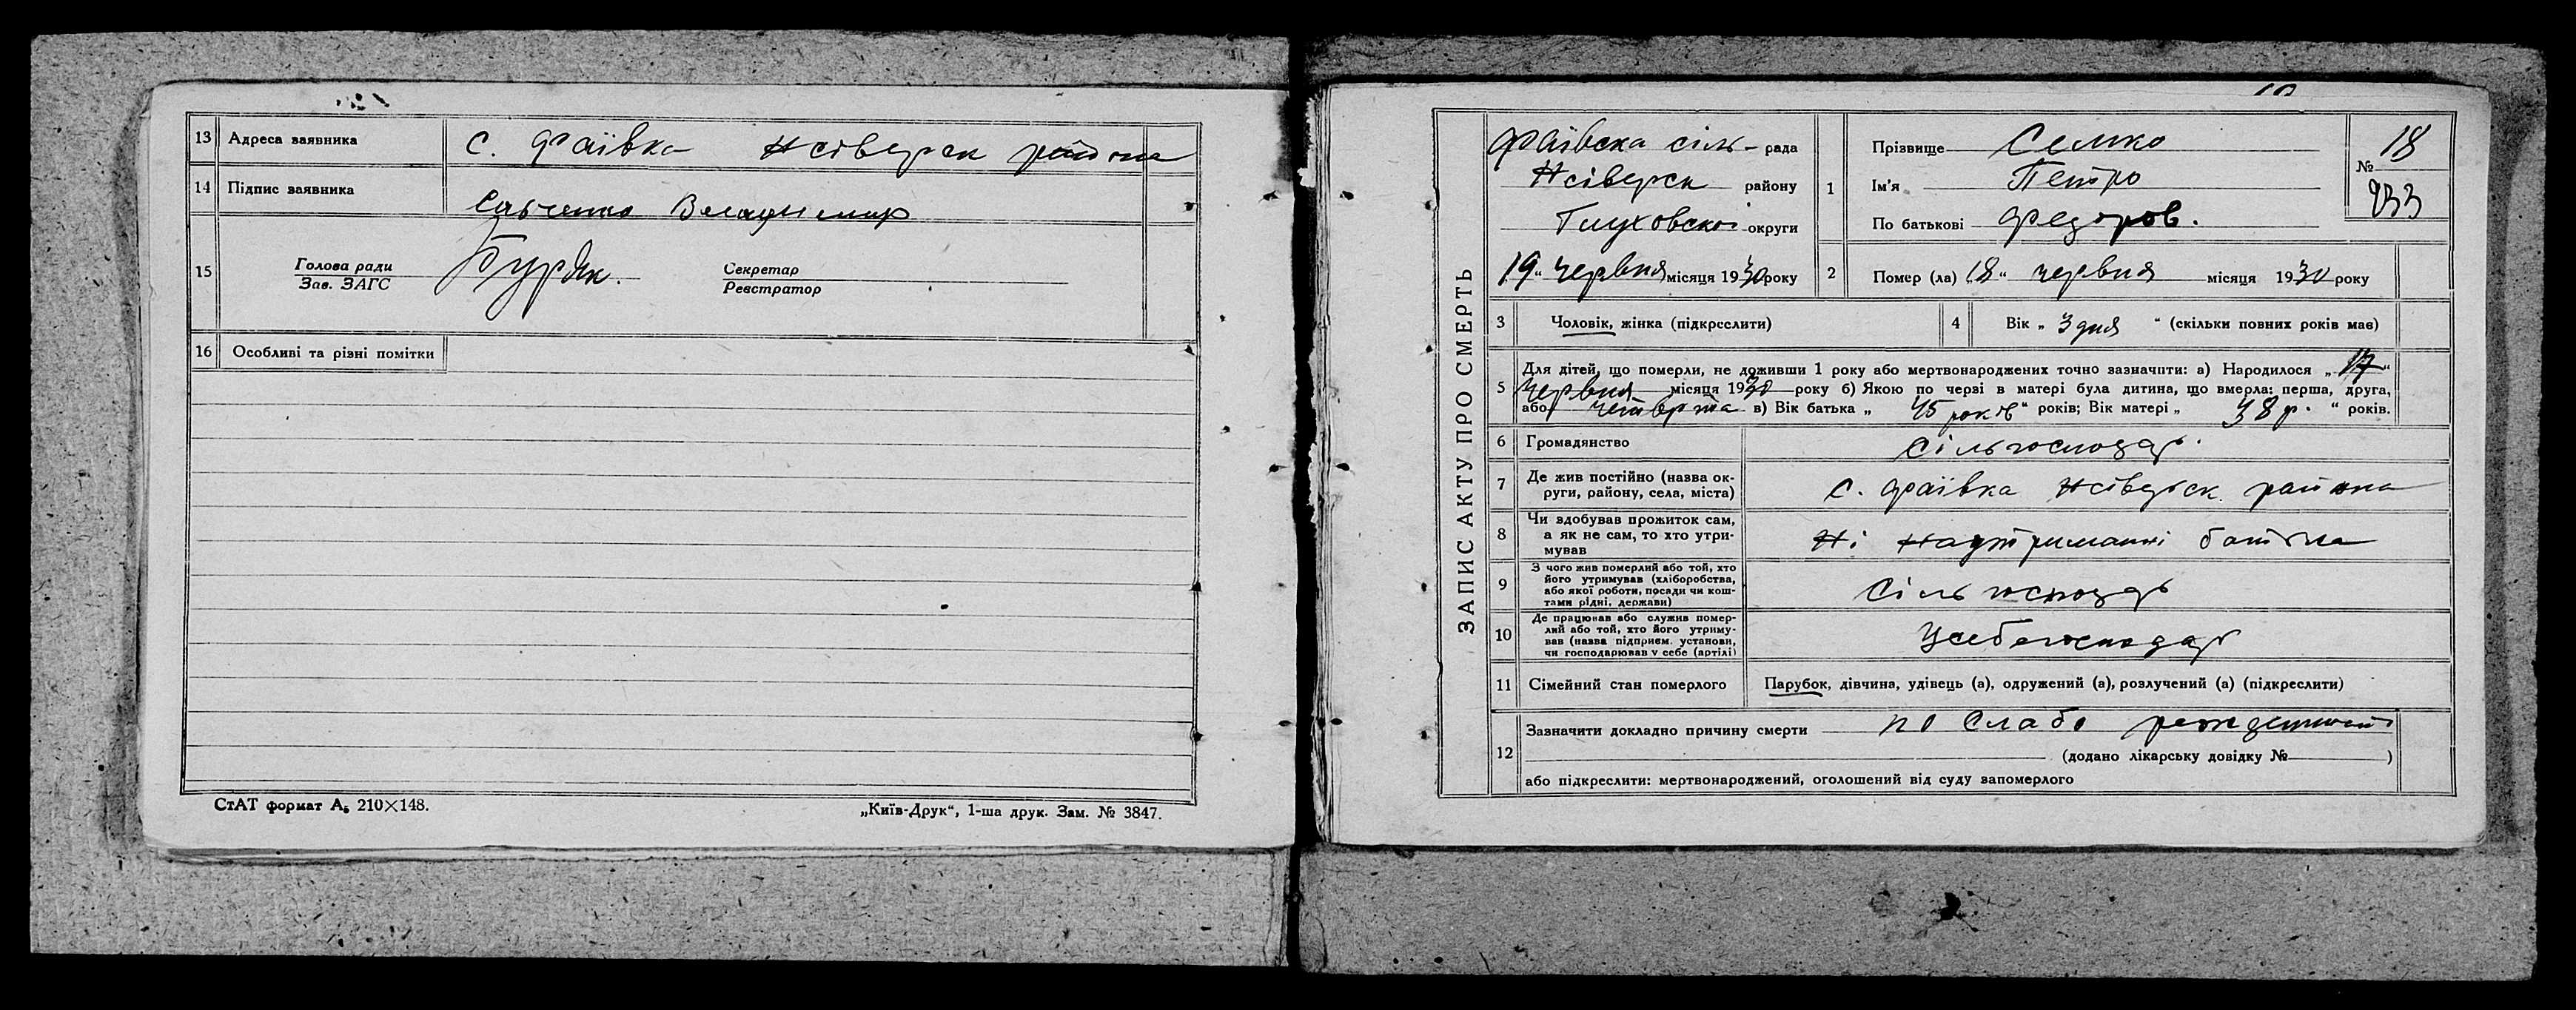 13 Адреса заявника с. Фаївка Нсіверск района
14 Підпис заявника Савченко Владимир
15 Голова ради Буряк. Секретар
Зав. ЗАГС Реєстратор
16 Особливі та різні помітки
СтАТ формат А₅ 210×148. „Київ-Друк“, 1-ша друк. Зам. № 3847.
ЗАПИС АКТУ ПРО СМЕРТЬ
Фаївска сіль- рада
Нсіверск району
Глуховскоі округи
19 „ червня місяця 1930 року
1 Прізвище Семко
Ім'я Петро
По батькові Федоров.
№ 18
933
2 Помер (ла) „18“ червня місяця 1930 року
3 Чоловік, жінка (підкреслити)
4 Вік „ 3 дня “ (скільки повних років має)
5 Для дітей, що померли, не доживши 1 року або мертвонароджених точно зазначити: а) Народилося „ 17 “
червня місяця 1930 року б) Якою по черзі в матері була дитина, що вмерла: перша, друга,
або четверта в) Вік батька „ 45 років “ років; Вік матері „ 38 р. “ років.
6 Громадянство Сільгосподар.
7 Де жив постійно (назва ок-
руги, району, села, міста) с. Фаївка Нсіверск. района
8 Чи здобував прожиток сам,
а як не сам, то хто утри-
мував Ні на утриманні батька
9 З чого жив померлий або той, хто
його утримував (хліборобства,
або якої роботи, посади чи кош-
тами рідні, держави) Сільгосподарь
10 Де працював або служив помер-
лий або той, хто його утриму-
вав (назва підприєм. установи,
чи господарював у себе (артілі) Усебе господар
11 Сімейний стан померлого Парубок, дівчина, удівець (а), одружений (а), розлучений (а) (підкреслити)
12 Зазначити докладно причину смерти по слабо
(додано лікарську довідку № )
або підкреслити: мертвонароджений, оголошений від суду запомерлого